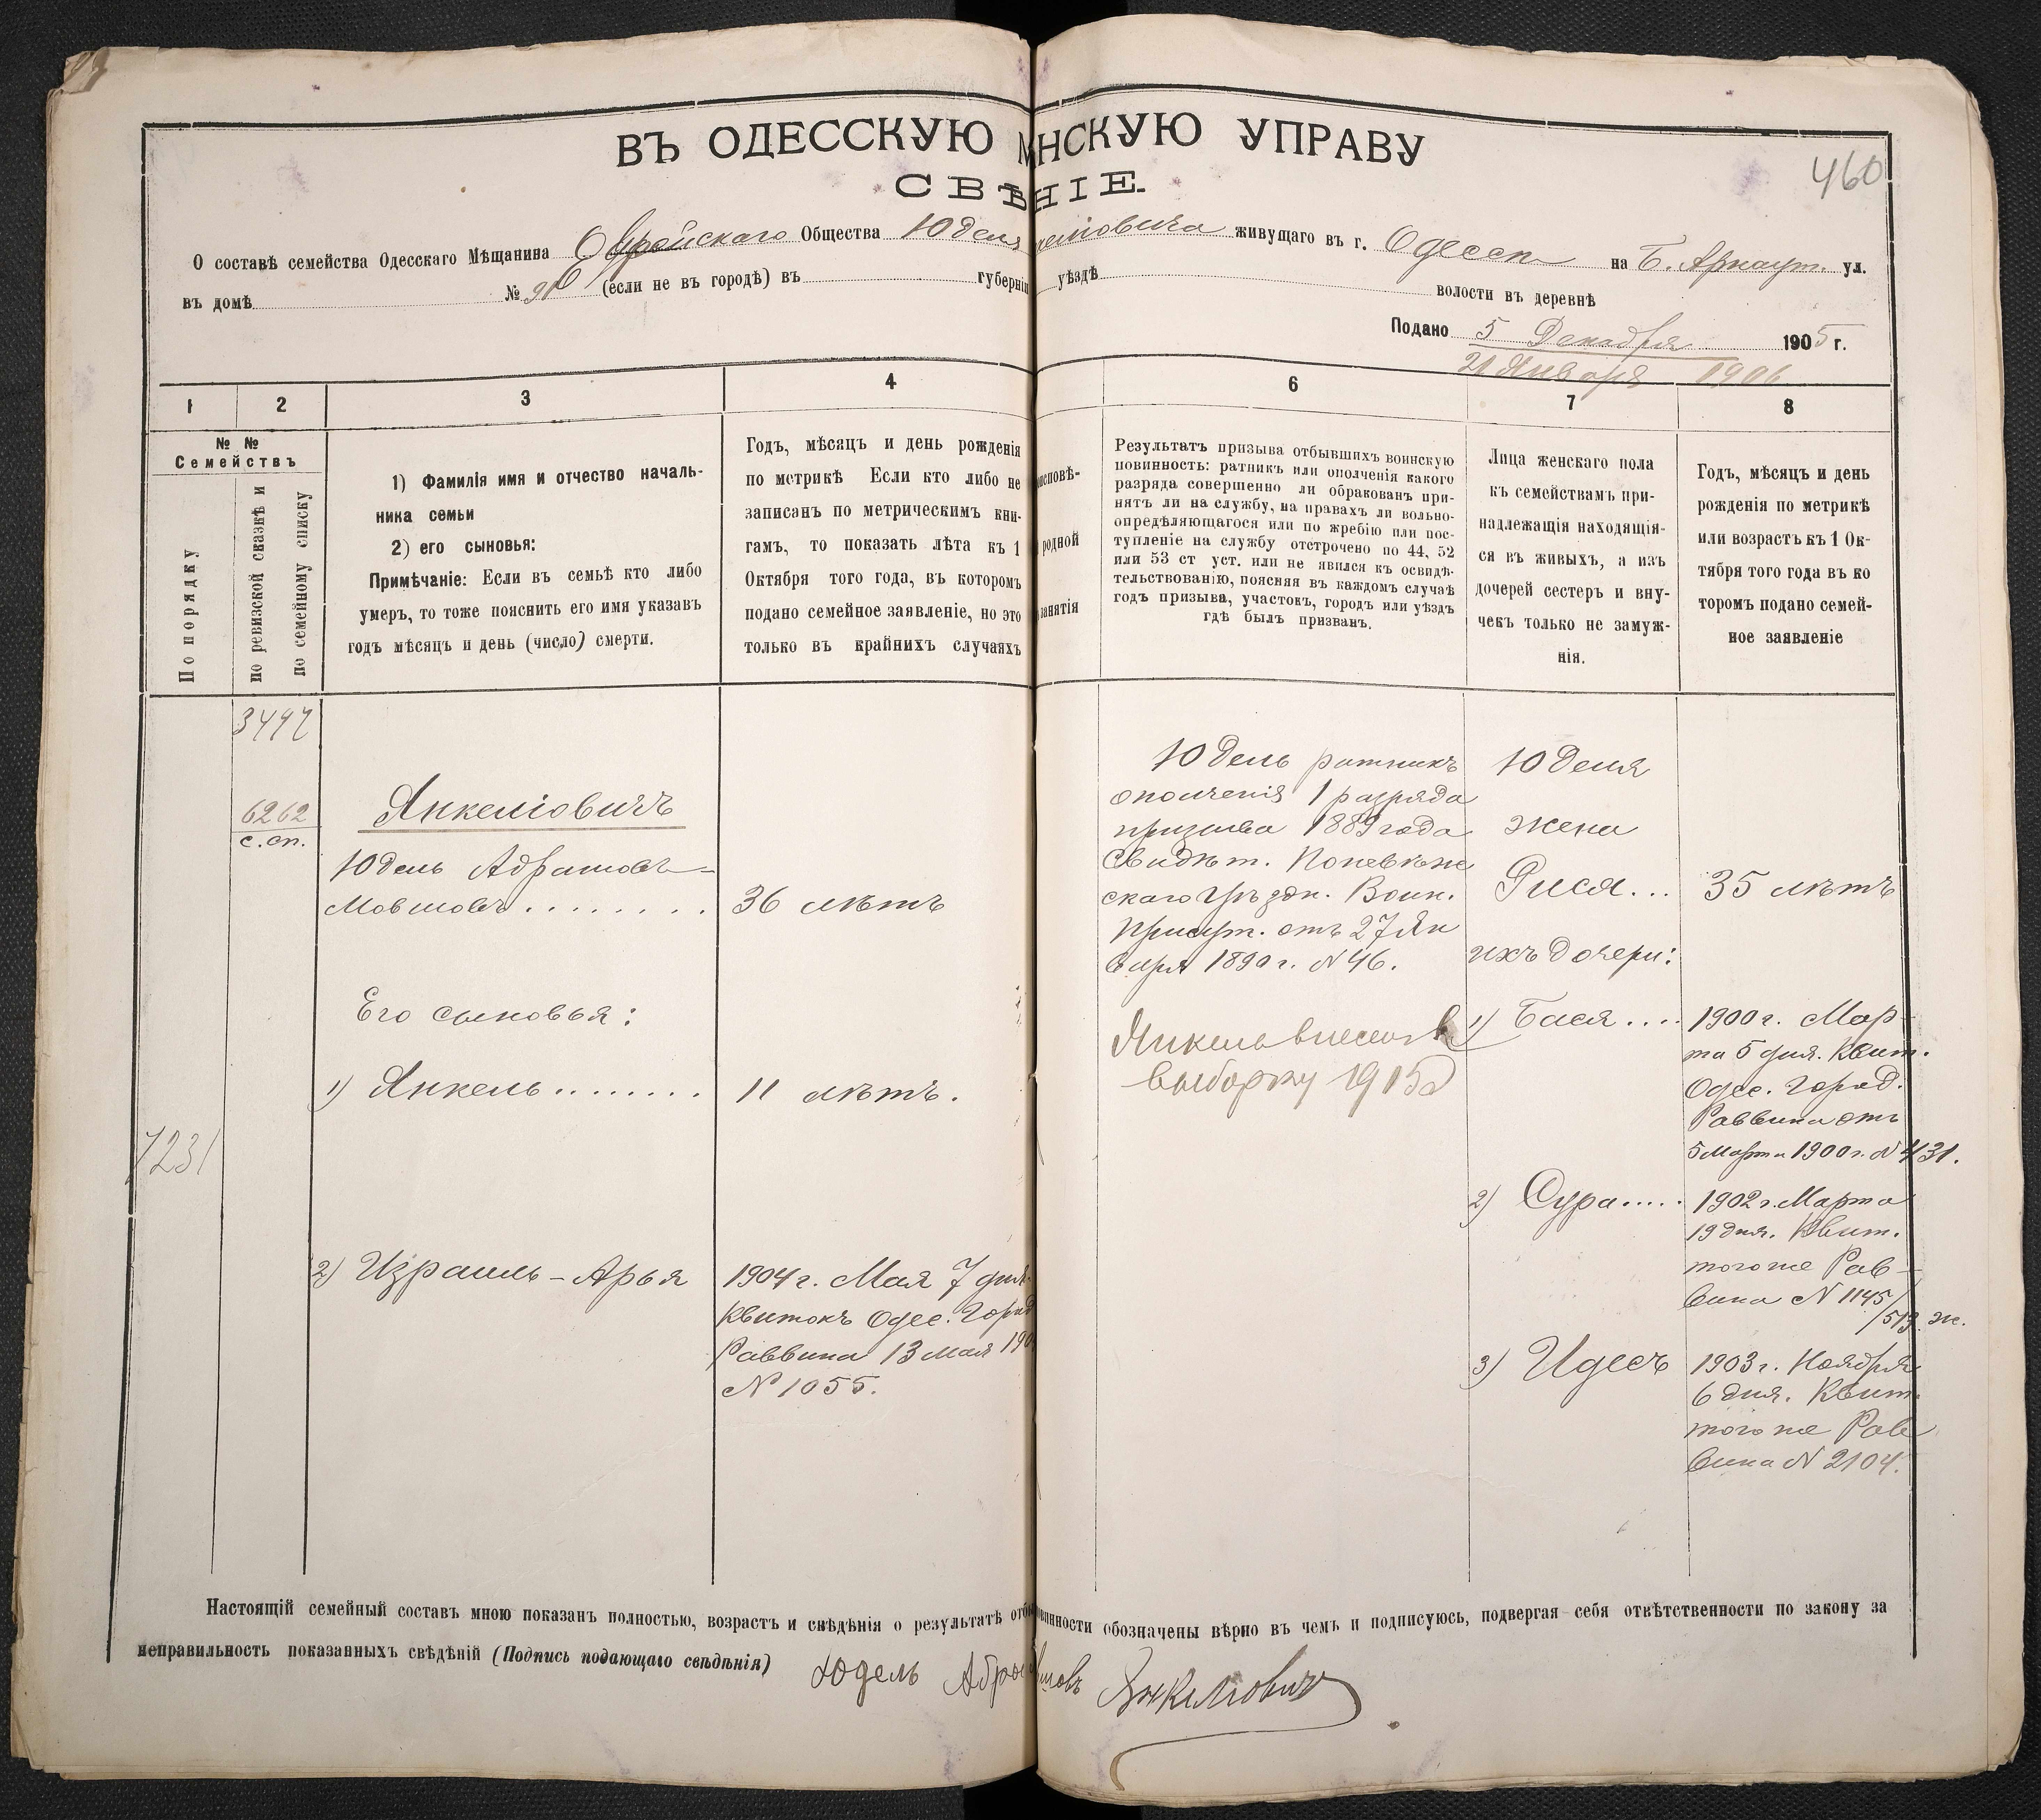 460
ВЪ ОДЕССКУЮ М НСКУЮ УПРАВУ
СВѢ НІЕ.
О составѣ семейства Одесскаго Мѣщанина Еврейскаго Общества Юделя келіовича живущаго въ г. Одессѣ на Б. Арнаут. ул.
въ домѣ № 91 (если не въ городѣ) въ губерніи уѣздѣ волости въ деревнѣ
Подано 5 Декабря 1905 г.
21 Января 1906
1 2 3 4 6 7 8
№ №
Семействъ
По порядку
по ревизской сказкѣ и
по семейному списку
1) Фамилія имя и отчество началь-
ника семьи
2) его сыновья:
Примѣчаніе: Если въ семьѣ кто либо
умеръ, то тоже пояснить его имя указавъ
годъ мѣсяцъ и день (число) смерти.
Годъ, мѣсяцъ и день рожденія
по метрикѣ Если кто либо не
записанъ по метрическимъ кни-
гамъ, то показать лѣта къ 1
Октября того года, въ которомъ
подано семейное заявленіе, но это
только въ крайнихъ случаяхъ
исповѣ-
родной
занятія
Результатъ призыва отбывшихъ воинскую
повинность: ратникъ или ополченія какого
разряда совершенно ли обракованъ при-
нятъ ли на службу, на правахъ ли вольно-
опредѣляющагося или по жребію или пос-
тупленіе на службу отстрочено по 44, 52
или 53 ст уст. или не явился къ освидѣ-
тельствованію, поясняя въ каждомъ случаѣ
годъ призыва, участокъ, городъ или уѣздъ
гдѣ былъ призванъ.
Лица женскаго пола
къ семействамъ при-
надлежащія находящія-
ся въ живыхъ, а изъ
дочерей сестеръ и вну-
чекъ только не замуж-
нія.
Годъ, мѣсяцъ и день
рожденія по метрикѣ
или возрастъ къ 1 Ок-
тября того года въ ко
торомъ подано семей-
ное заявленіе
3497
6262
с. сп.
7231
Янкеліовичъ
Юдель Абрамовъ-
Мовшовъ ........
36 лѣтъ
Его сыновья:
1) Янкель ........
11 лѣтъ.
2) Израиль-Арья
1904 г. Мая 7 дня.
Квитокъ Одес. Город
Раввина 13 мая 190
№ 1055.
Юдель ратникъ
ополченія 1 разряда
призыва 1889 года
Свидѣт. Поневѣж
скаго Уѣздн. Воин.
Присут. отъ 27 Ян
варя 1890 г. № 46.
Янкель внесенъ въ
выборку 1915
Юделя
жена
Рися...
35 лѣтъ
ихъ дочери:
1) Бася....
1900 г. Мар-
та 5 дня. Квит.
Одес. Город.
Раввина отъ
5 Марта 1900 г. № 431.
2) Сура.....
1902 г. Марта
19 дня. Квит.
того же Рав-
вина № 1145/519. ж.
3) Идесъ
1903 г. Ноября
6 дня. Квит.
того же Рав
вина № 2104.
Настоящій семейный составъ мною показанъ полностью, возрастъ и свѣдѣнія о результатѣ отбы винности обозначены вѣрно въ чемъ и подписуюсь, подвергая себя отвѣтственности по закону за
неправильность показанныхъ свѣдѣній (Подпись подающаго свѣдѣнія) Юдель Абрамовъ Янкеліовичъ